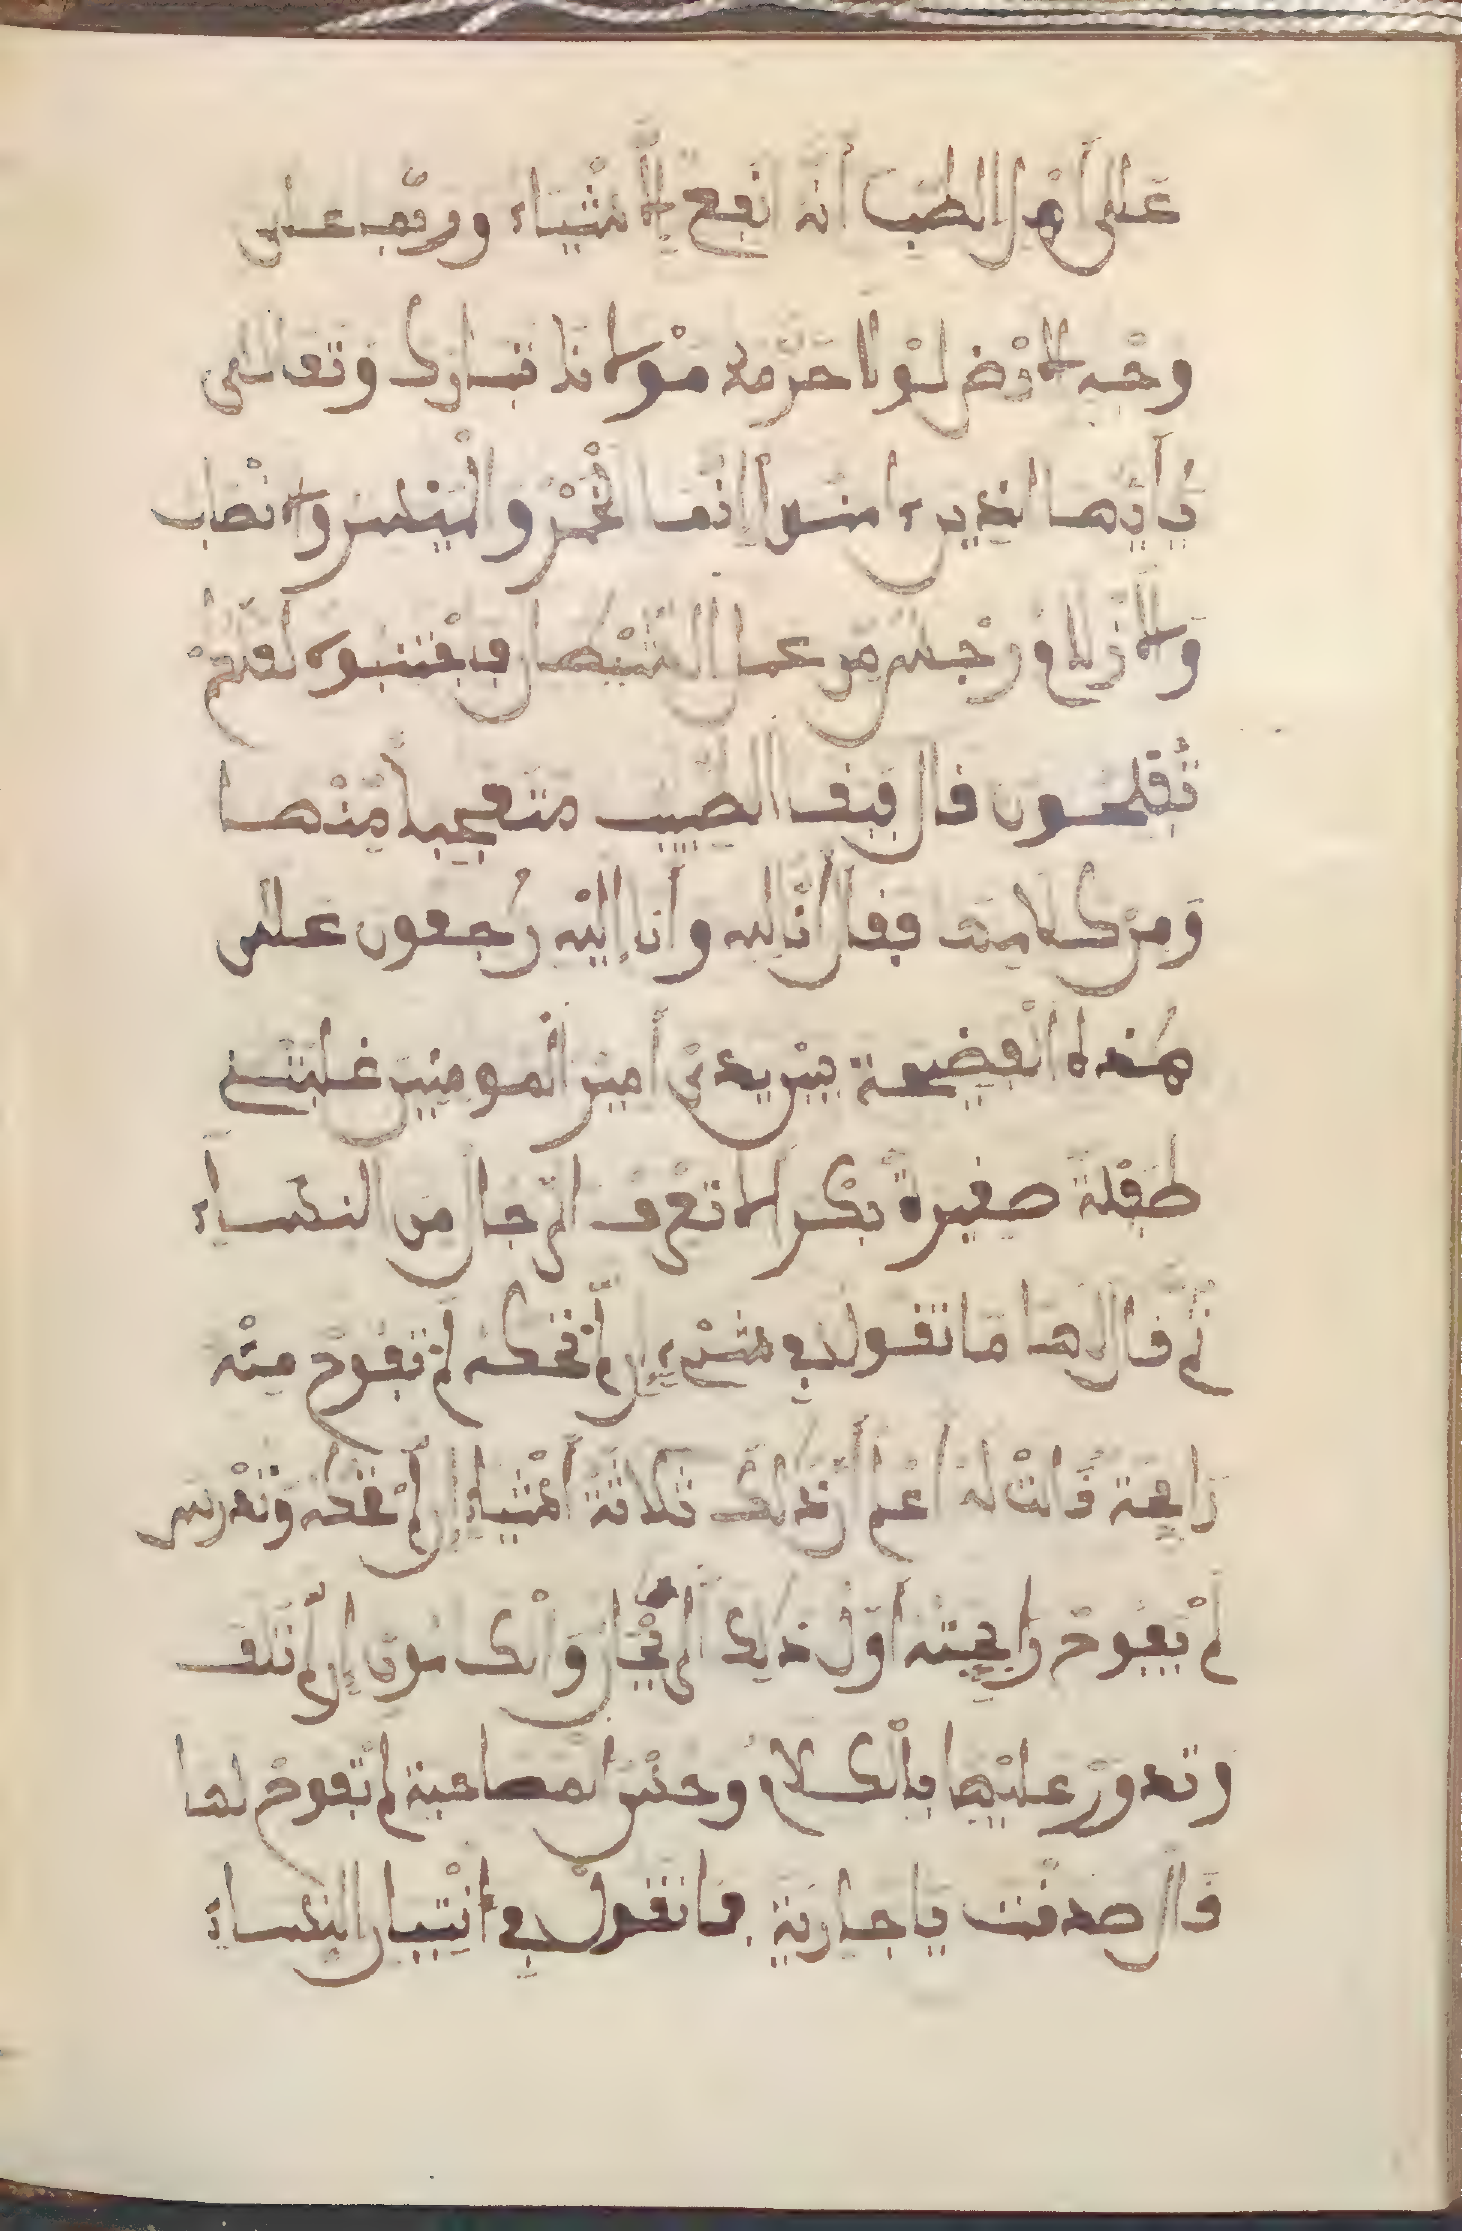 على أهل الطب أنه انفع الأشياء وو على
وجه الأرض لولا حرمه مولانا تبارك وتعالى
يأيها الذين ءامنوا إنما الخمر والميسر والانصاب
والأزلام رجس من عمل الشيطان فاجتنبوه لعلكم
تفلحون قال فبقى الطبيب متعجبا منها
ومن كلامها فقال إنا لله وإنا إليه رجعون على
هذه الفضيحة بين يدي أمير المومنين غلبتني
طفلة صغيرة بكر لا تعرف الرجال من النساء
ثم قال لها ما تقول في شيء إن لم تحكه لم تفوح منه
رايحة قالت له اعلم أن ذلك ثلاثة أشياء إن لم تحكه وتعرس
لم يفوح رايحته أول ذلك والكمون إن لم
وتدور عليها بالكلام وحسن المصاحبة لم تفوح لها
قال صدقت يا جارية ما تقول في اتيان النساء